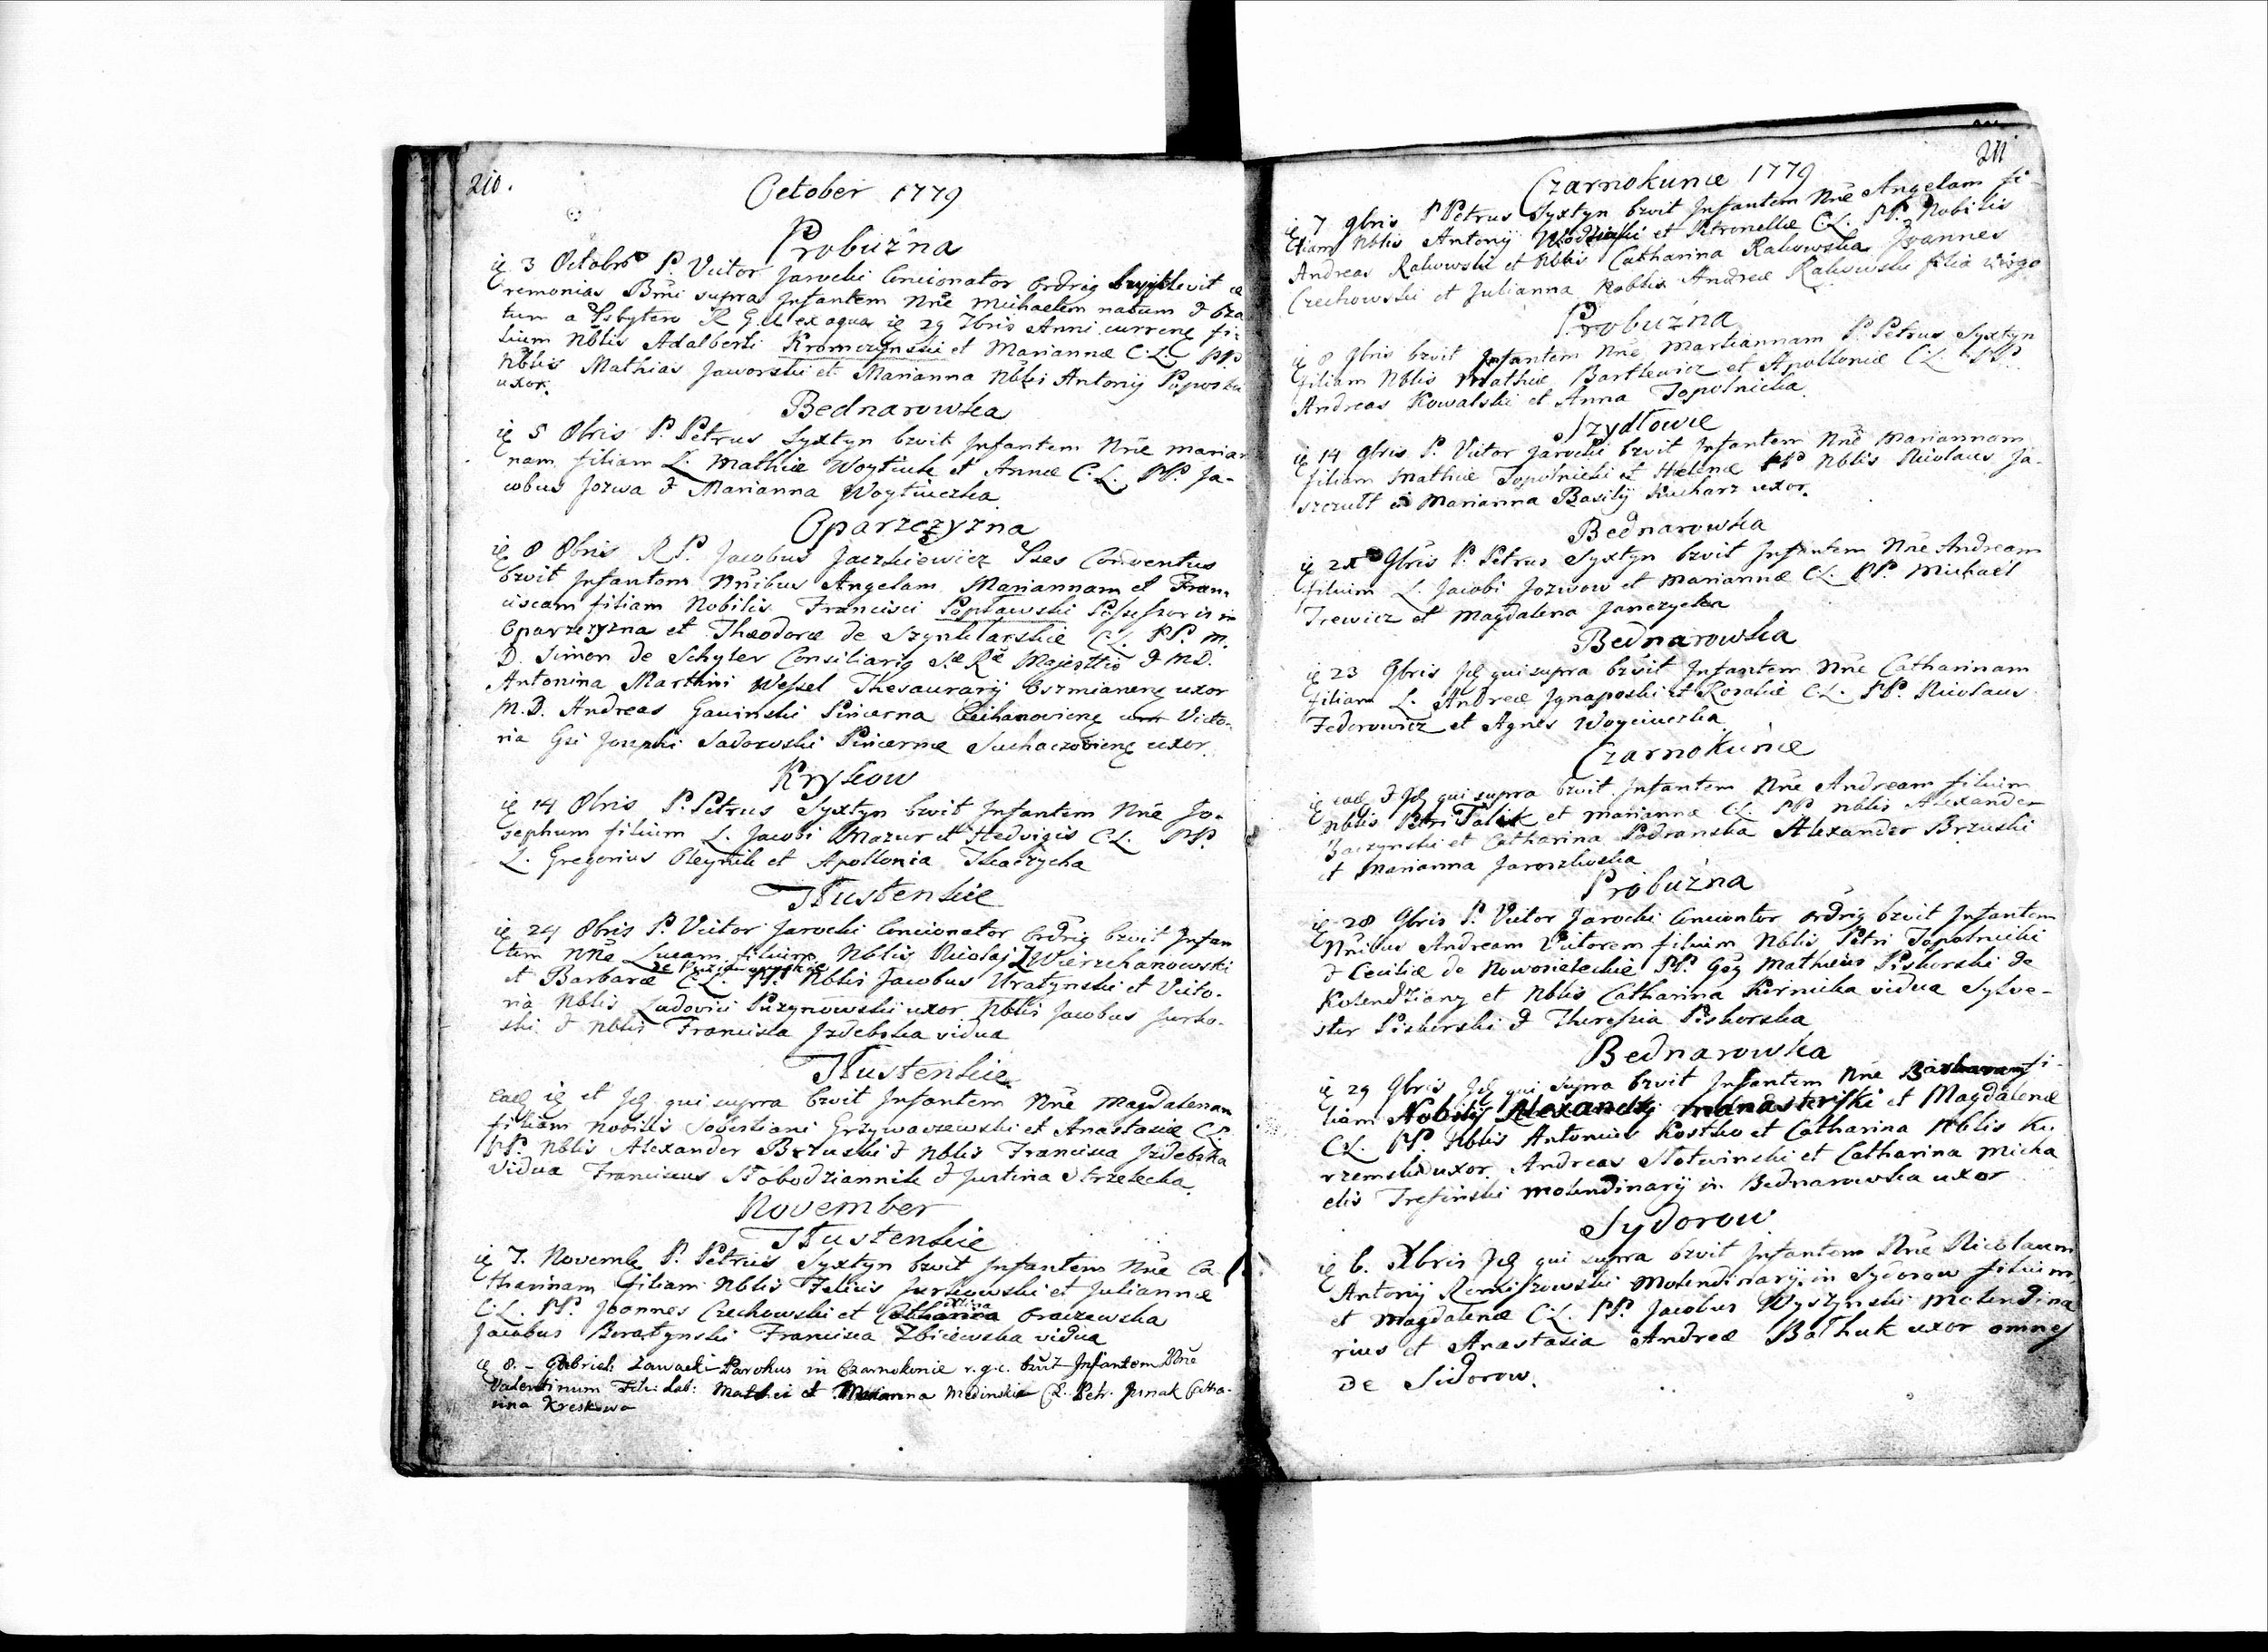 210.
October 1779
Probużna
ię 3 Octobr P. Victor Jarocki Concionator Ordrig supplevit ce
remonias Bmi supra Infantem Nñe Michaelem natum & bza
tum a Psbytero R G U ex aqua ię 29 7bris Anni currenę fi-
lium Nblis Adalberti Kromczynski et Mariannæ C.L. PP.
Nblis Mathias Jaworski et Marianna Nblsi Antonij
uxor.
Bednarowka
ię 5 8bris P. Petrus Syxtyn bzvit Infantem Nñe marian
nam filiam L. Mathiæ Woytiuk et Annæ C.L. PP. Ja-
cobus Jozwa & Marianna Woytiuczka
Oparzczyzna
ię 8 8bris R P. Jacobus Jaczkiewicz Pses Conventus
bzvit Infantem Nñibus Angelam Mariannam et Fran-
ciscam filiam Nobilis Francisci Popławski Possessoris in
Oparzczyzna et Theodoræ de Szynklarskie C.L. PP. M.
D. Simon de Schyler Consiliarig Sæ Ræ Majesttis & MD.
Antonina Martini Wessel Thesaurarij Oszmianenę uxor
M.D. Andreas Gawinski Pincerna Ciechanovienę cum Victo-
ria Gsi Josephi Sadowski Pincernæ Suchaczovienę uxor.
Krykow
ię 14 8bris P. Petrus Syxtyn bzvit Infantem Nñe Jo-
sephum filium L. Jacobi Mazur et Hedvigis C.L. PP.
L. Gregorius Oleynik et Apollonia Tkaczycha
Tłustenkie
ię 24 8bris P. Victor Jarocki Concionator Ordrig bzvit Infan
tem Nñe Lucam filium Nblis Nicolaj Zwierzchanowski
et Barbaræ C.L. PP. Nblis Jacobus Uratynski et Victo-
ria Nblis Ludovici Puzynowskij uxor Nblis Jacobus Jurko-
ski & Nblis Francisca Jzdebska vidua
Tłustenkie
eadę ię et Idę qui supra bzvit Infantem Nñe Magdalenam
filiam Nobilis Sobestiani Grzywaczewski et Anastasiæ C.L.
PP. Nblis Alexander Brzuski & Nblis Francisca Jzdebska
vidua Franciscus Słobodziannik & Justina Strzelecka.
November
Tłustenkie
ię 7. Novembę P. Petrus Syxtyn bzvit Infantem Nñe Ca-
tharinam filiam Nblis Felicis Jurkowski et Juliannæ
C.L. PP. Joannes Czechowski et Oraczewska
Jacobus Boratynski Francisca Zbiiewska vidua
ię 8. - Gabriel: Zawacki Parohus in Czarnokonie r.g.c. bzvit Infantem Nñe
Valentinum Fil: Lab: Mathei et Marianna Medinskie C.L. Petr. Jurnak Catha-
rina Kreskowa
211
Czarnokunce 1779
ię 7 9bris P Petrus Syxtyn bzvit Infantem Nñe Angelam fi-
liam Nblis Antonij Wodzinski et Petronellæ C.L. PP. Nobilis
Andreas Rakowski et Nblis Catharina Rakowska Joannes
Czechowski et Julianna Noblis Andreæ Rakowski filia virgo
Probużna
ię 8 9bris bzvit Infantem Nñe Mariannam P. Petrus Syxtyn
filiam Nblis Mathiæ Bartkewicz et Apolloniæ C.L. PP.
Andreas Kowalski et Anna Topolnicka.
Szydłowce
ię 14 9bris P. Victor Jarocki bzvit Infantem Nñe Mariannam
filiam Mathiæ Topolnicki et Helenæ PP Nblis Nicolaus Ja-
szczułt et Marianna Basilij Kucharz uxor.
Bednarowka
ię 21 9bris P. Petrus Syxtyn bzvit Infantem Nñe Andream
filium L. Jacobi Jozwow et Mariannæ C.L. PP. Michael
Irewicz et Magdalena Janczycka
Bednarowka
ię 23 9bris Idę qui supra bzvit Infantem Nñe Catharinam
filiam L. Andreæ Jgnaposki et Rosaliæ C.L. PP. Nicolaus
Fedorowicz et Agnes Woyciuczka
Czarnokunce
ię eadę & Idę qui supra bzvit Infantem Nñe Andream filium
Nblis Petri Talik et Mariannæ C.L. PP Nblis Alexander
Baczynski et Catharina Podranska Alexander Brzuski
et Marianna Jaroszkwska
Probużna
ię 28 9bris P. Victor Jarocki Concionator Ordrig bzvit Infantem
Nñibus Andream Victorem filium Nblis Petri Topolnicki
& Ceciliæ de Nowosieleckie PP. Gsg Mathæus Piskorski de
Kolendziany et Nblis Catharina Kirnicka vidua Sylve-
ster Piskorski & Theressia Piskorska
Bednarowka
ię 29 9bris Idę qui supra bzvit Infantem Nñe Barbaram fi-
liam Nobilij Alexandrij Manasterski et Magdalenæ
C.L. PP Nblis Antonius Kostko et Catharina Nblis Ku-
rzemski uxor Andreas Slotwinski et Catharina Micha
elis Trefinski molendinarij in Bednarowka uxor
Sydorow
ię 6. Xbris Idę qui supra bzvit Infantem Nñe Nicolaum
Antonij Remiszowski Molendinarij in Sydorow filium
et Magdalenæ C.L. PP. Jacobus Wyszynski Molendina
rius et Anastasia Andreæ Bałhuk uxor omnes
de Sidorow.